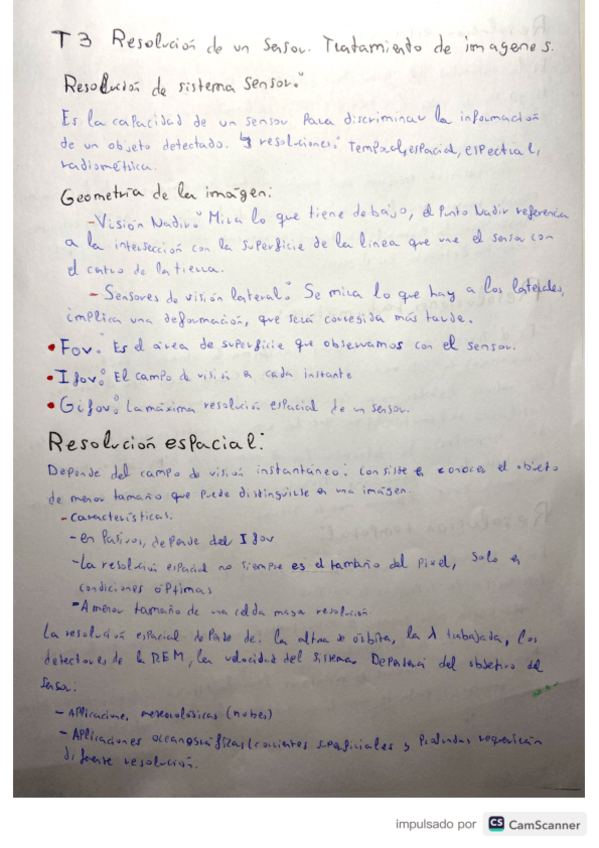 T3 Resolución de un sensor. Tratamiento de imagenes.
Resolución de sistema sensor:
Es la capacidad de un sensor para discriminar la información
de un objeto detectado. ↳ resoluciones: Temporal, espacial, espectral,
radiométrica.
Geometría de la imágen:
- Visión Nadir: Mira lo que tiene debajo, el punto Nadir referencia
a la intersección con la superficie de la linea que une el sensor con
el centro de la tierra.
- Sensores de visión lateral: Se mira lo que hay a los laterales,
implica una deformación, que será corregida más tarde.
• Fov: Es el área de superficie que observamos con el sensor.
• Ifov: El campo de visión en cada instante
• Gifov: La máxima resolución espacial de un sensor.
Resolución espacial:
Depende del campo de visión instantáneo: consiste en conocer el objeto
de menor tamaño que puede distinguirse en una imágen.
- Características:
- en Pasivos, depende del Ifov
- La resolución espacial no siempre es el tamaño del pixel, solo en
condiciones óptimas
- A menor tamaño de una celda mayor resolución.
La resolución espacial depende de: la altura de órbita, la λ trabajada, los
detectores de la REM, la velocidad del sistema. Dependerá del objetivo del
sensor:
- Aplicaciones meteorológicas (nubes)
- Aplicaciones oceanográficas (corrientes superficiales y profundas requerirán
diferente resolución.
impulsado por CS CamScanner